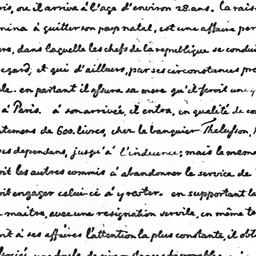 ris, ou il arriva à l'âge d'environ 28. ans. La rais
mina à quitter son pays natal, est une affaire per
re, dans laquelle les chefs de la republique se condui
egard, et qui d'ailleurs, par ses circonstances pre
le. en partant il assura sa mere qu'il feroit une
à Paris. à son arrivée, il entra, en qualité de co
temens de 600. livres, chez le banquier Thelusson,
es dependans, jusqu'à l'indecence; mais le mome
oit les autres commis à abandonner le service de
oit engager celui-ci à y rester. en supportant le
maitre, avec une resignation servile, en même te
oit à ses affaires l'attention la plus constante, il obt